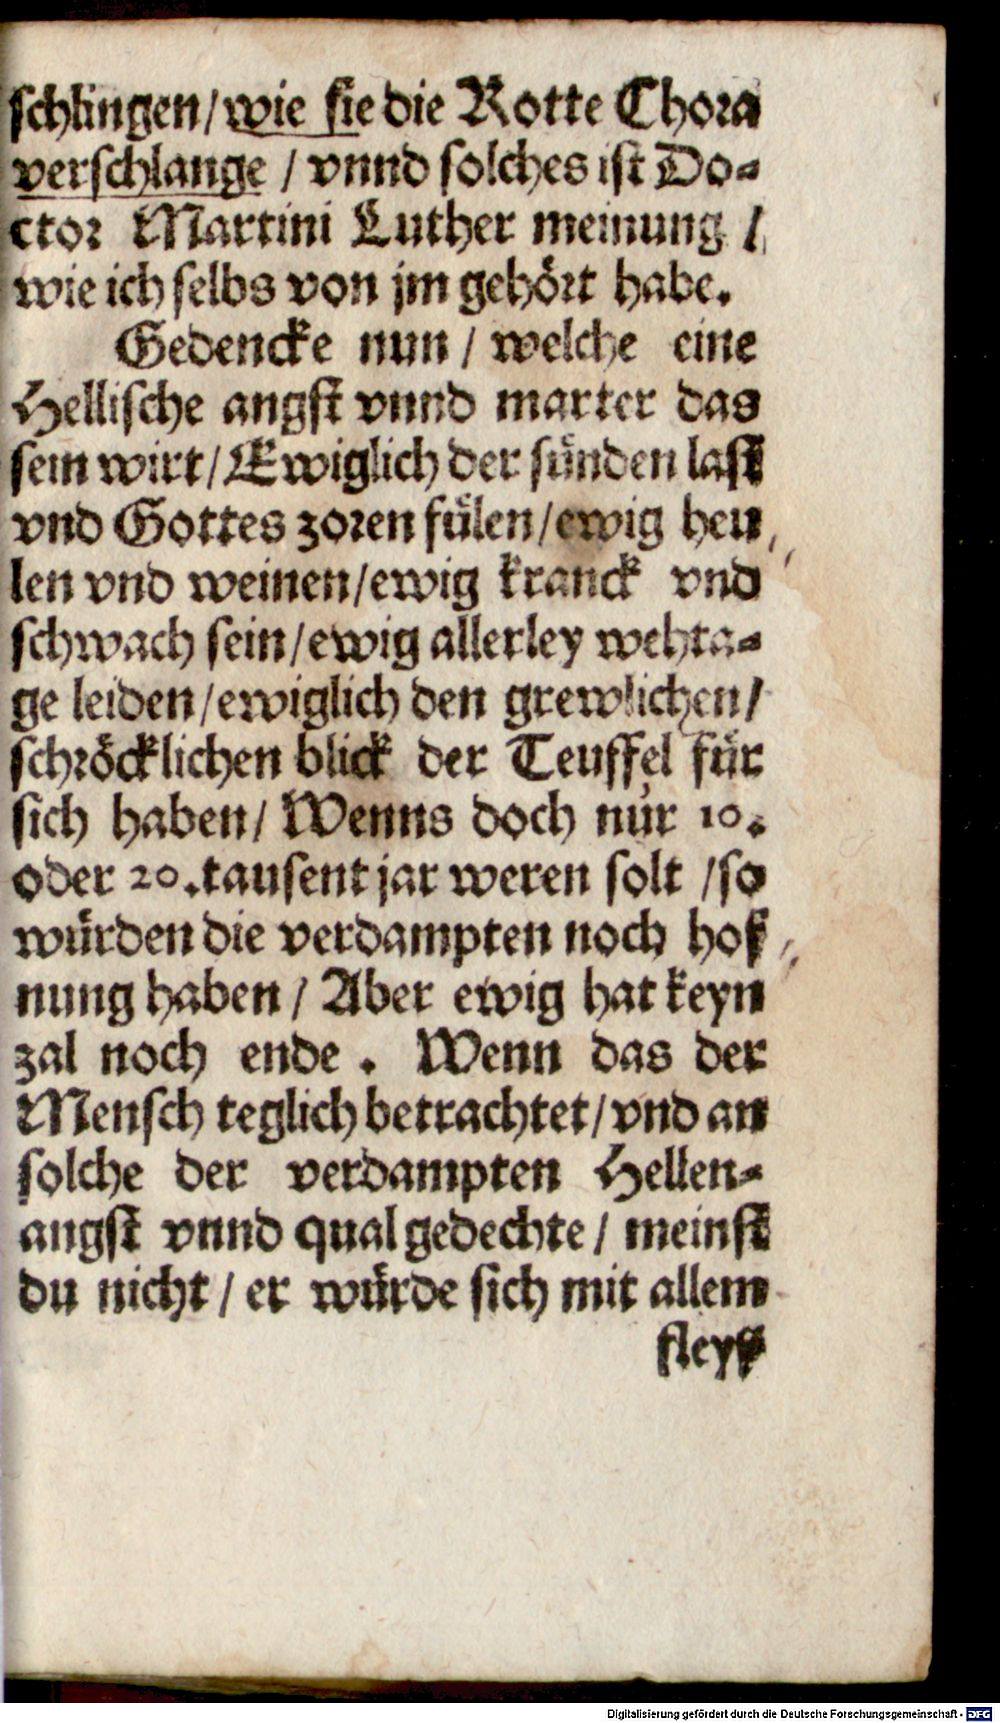 schlingen/wie sie die Rotte Chora
verschlange / vnnd solches ist Do-
ctor Martini Luther meinung /
wie ich selbs von jm gehört habe.
Gedencke nun / welche eine
Hellische angst vnnd marter das
sein wirt/Ewiglich der sünden last
vnd Gottes zoren fülen/ewig heu
len vnd weinen/ewig kranck vnd
schwach sein/ewig allerley wehta-
ge leiden/ewiglich den grewlichen/
schröcklichen blick der Teuffel für
sich haben/ Wenns doch nur 10.
oder 20.tausent jar weren solt /so
würden die verdampten noch hof
nung haben / Aber ewig hat keyn
zal noch ende . Wenn das der
Mensch teglich betrachtet/vnd an
solche der verdampten Hellen-
angst vnnd qual gedechte / meinst
du nicht / er würde sich mit allem
fleyß
Digitalisierung gefördert durch die Deutsche Forschungsgemeinschaft - DFG